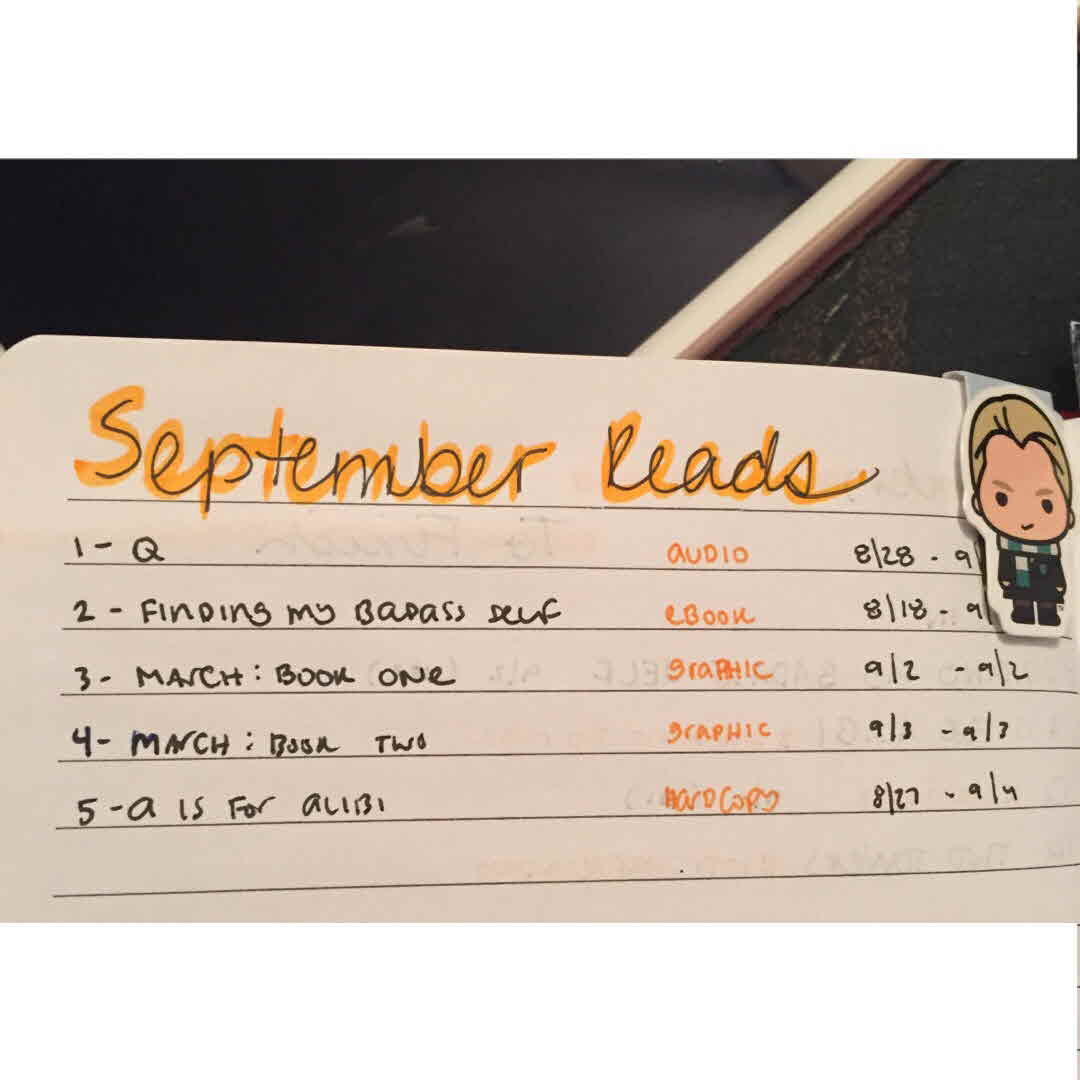 September Reads
1 - Q AUDIO 8/28 - 9/
2 - FINDING my BADASS SELF eBOOK 8/18 - 9/
3 - MARCH: BOOK ONE GRAPHIC 9/2 - 9/2
4 - MARCH: BOOK TWO GRAPHIC 9/3 - 9/3
5 - A IS FOR ALIBI HARDCOPY 8/27 - 9/4